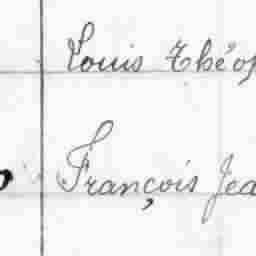 Louis Théop
François Jea